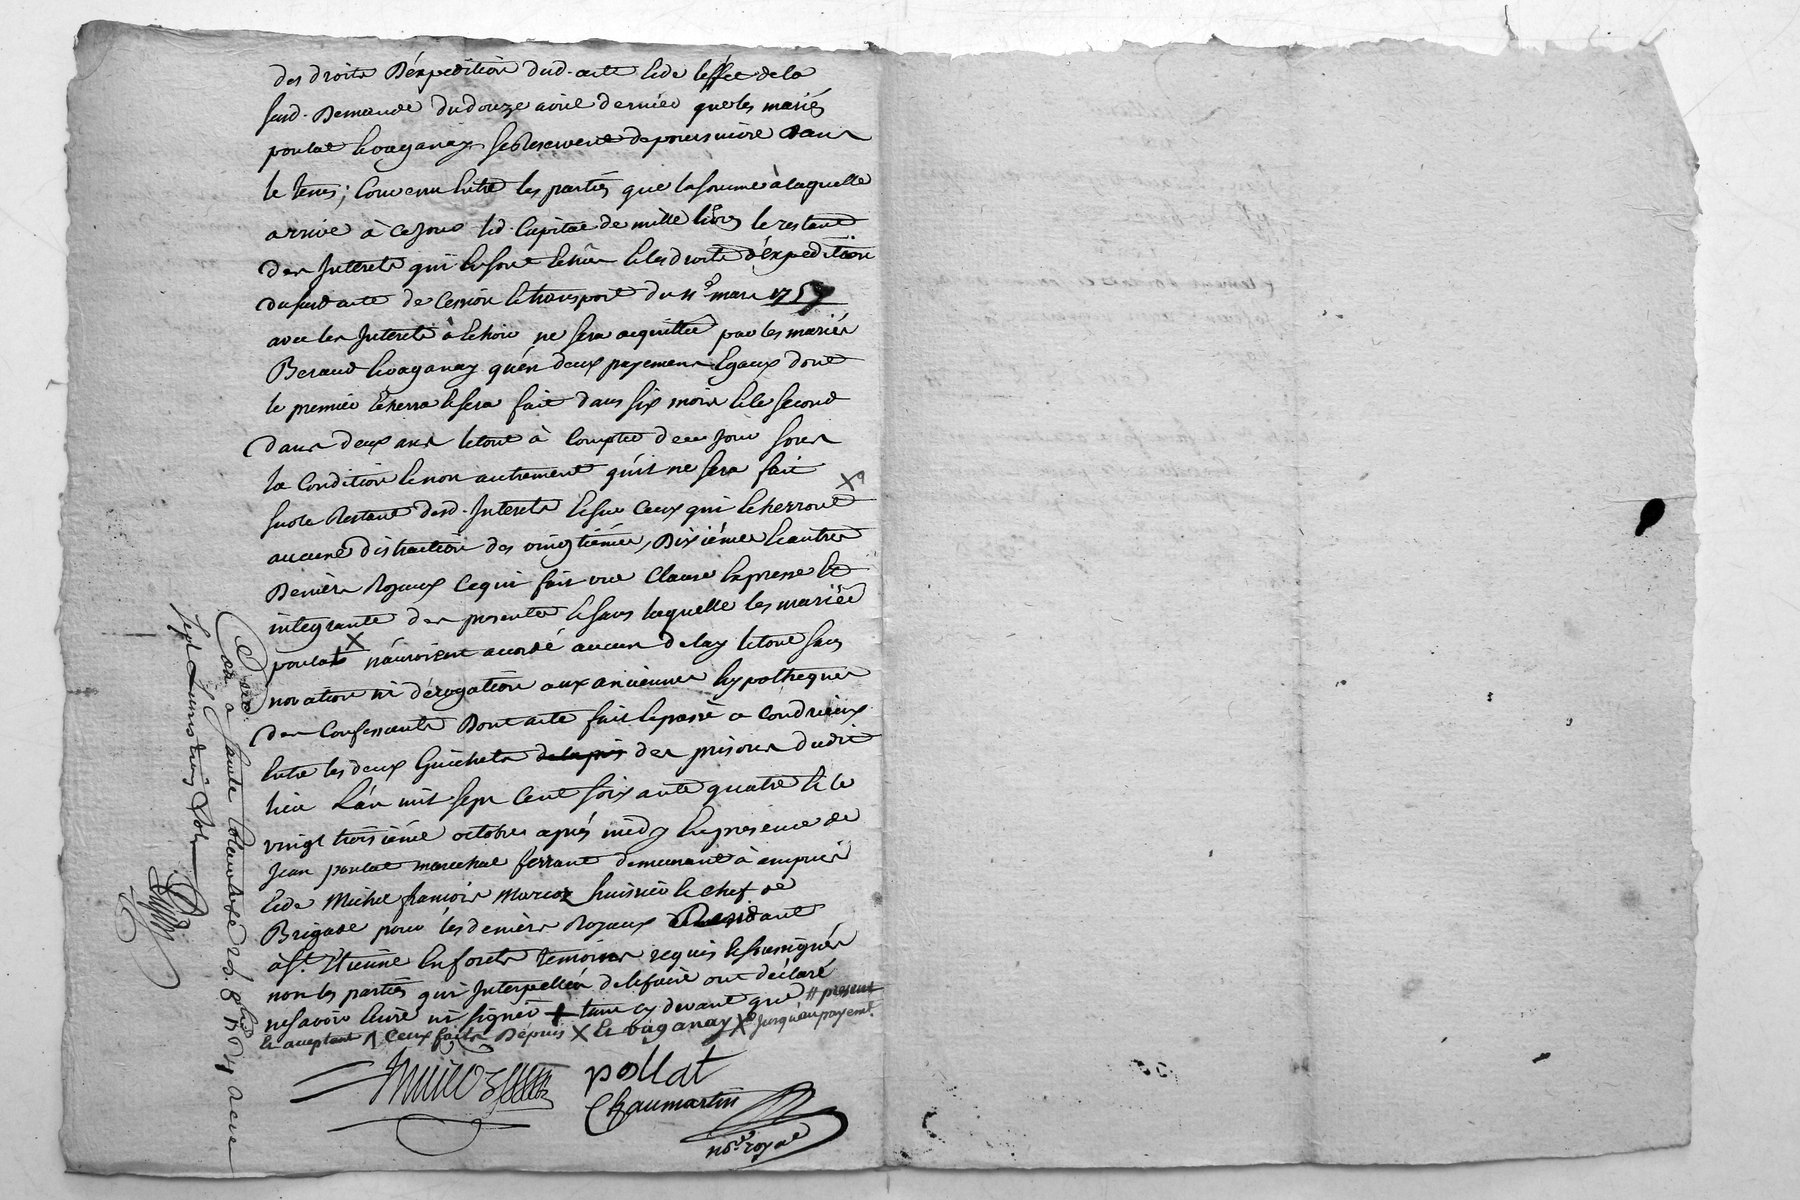 des droits D'éxpedition dud. acte & de l'effet de la
susd. Demande du douze avril dernier que les mariés
poulat & vaganay se Reservent de poursuivre dans
le tems; Convenu Entre les parties que la somme à laquelle
arrive à ce Jour led. Capital de mille livres le restant
Des Interets qui En sont Echûs & les droits d'éxpedition
dususd acte de Cession & transport du 11e mars 1757
avec les Interets à Echoir ne sera acquittée par les mariés
Beraud & vaganay qu'en deux payemens Egaux dont
le premier Echerra & sera fait dans six mois & le second
Dans deux ans le tout à Compter de ce Jour sous
la Condition & non autrement qu'il ne sera fait
sur le Restant desd. Interets & sur Ceux qui Echerront X
aucune distraction des vingtiémes, Dixiémes & autres
Deniers Royaux Ce qui fait une Clause Expresse &
integrante des presentes & sans laquelle les mariés
poulat X n'auroient accordé aucun delay le tout sans
novation ni dérogation aux anciennes hypotheques
Des Confessants Dont acte fait & passé a Condrieux
Entre les deux Guichets de la pris des prisons dudit
lieu L'an mil sept Cent soixante quatre & le
vingt troisiéme octobre aprés midy En presence de
Jean poulat marechal ferrant demeurant à ampuis
& de Michel françois Marcoz huissier & chef de
Brigade pour les deniers Royaux Residant
à St. Etienne En forets temoins requis & soussignés
non les parties qui Interpellées de le faire ont déclaré
ne savoir Ecrire ni signer + tant cy devant que # present
& aceptant ^ Ceux faits Depuis X & vaganay X Jusqu'au payemt.
pollat
Chaumartin
nore. royal
Con a Sainte Colombe le 29. 8bre 1764 Reçu
Sept Livres trois sols